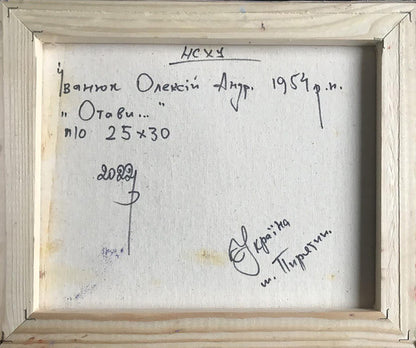 НСХУ
Іванюк Олексій Андр. 1954 р.н.
"Отави..."
п/о 25х30
2022р
Україна
м. Пирятин.